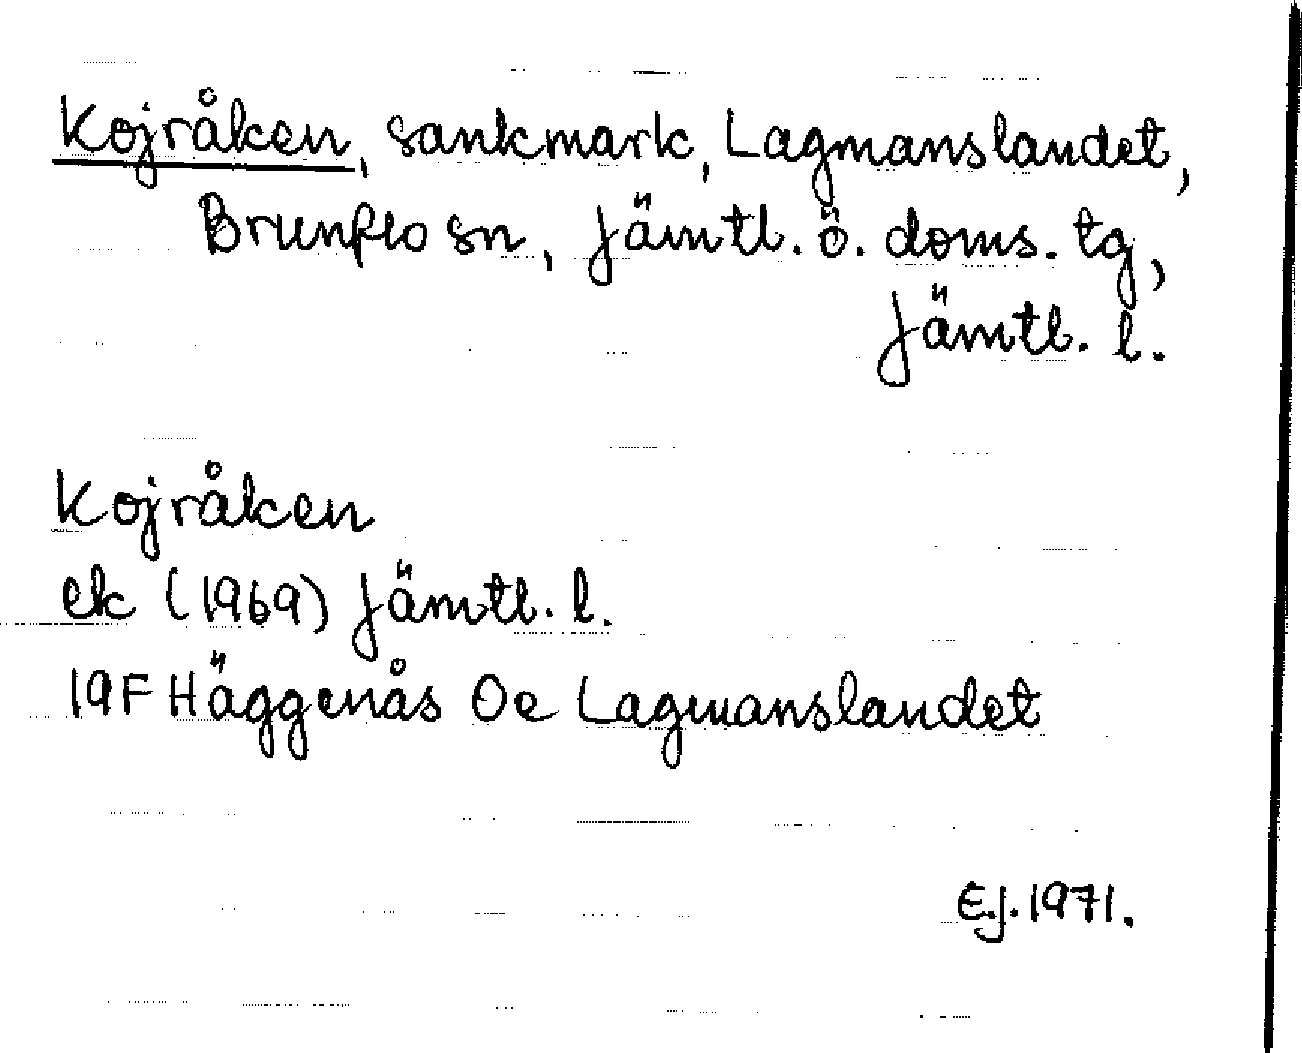 Kojråken, sankmark, Lagmanslandet,
Brunflo sn, Jämtl. ö. doms. tg,
Jämtl. l.
Kojråken
ek (1969) Jämtl. l.
19F Häggenås Oe Lagmanslandet
E.J. 1971.